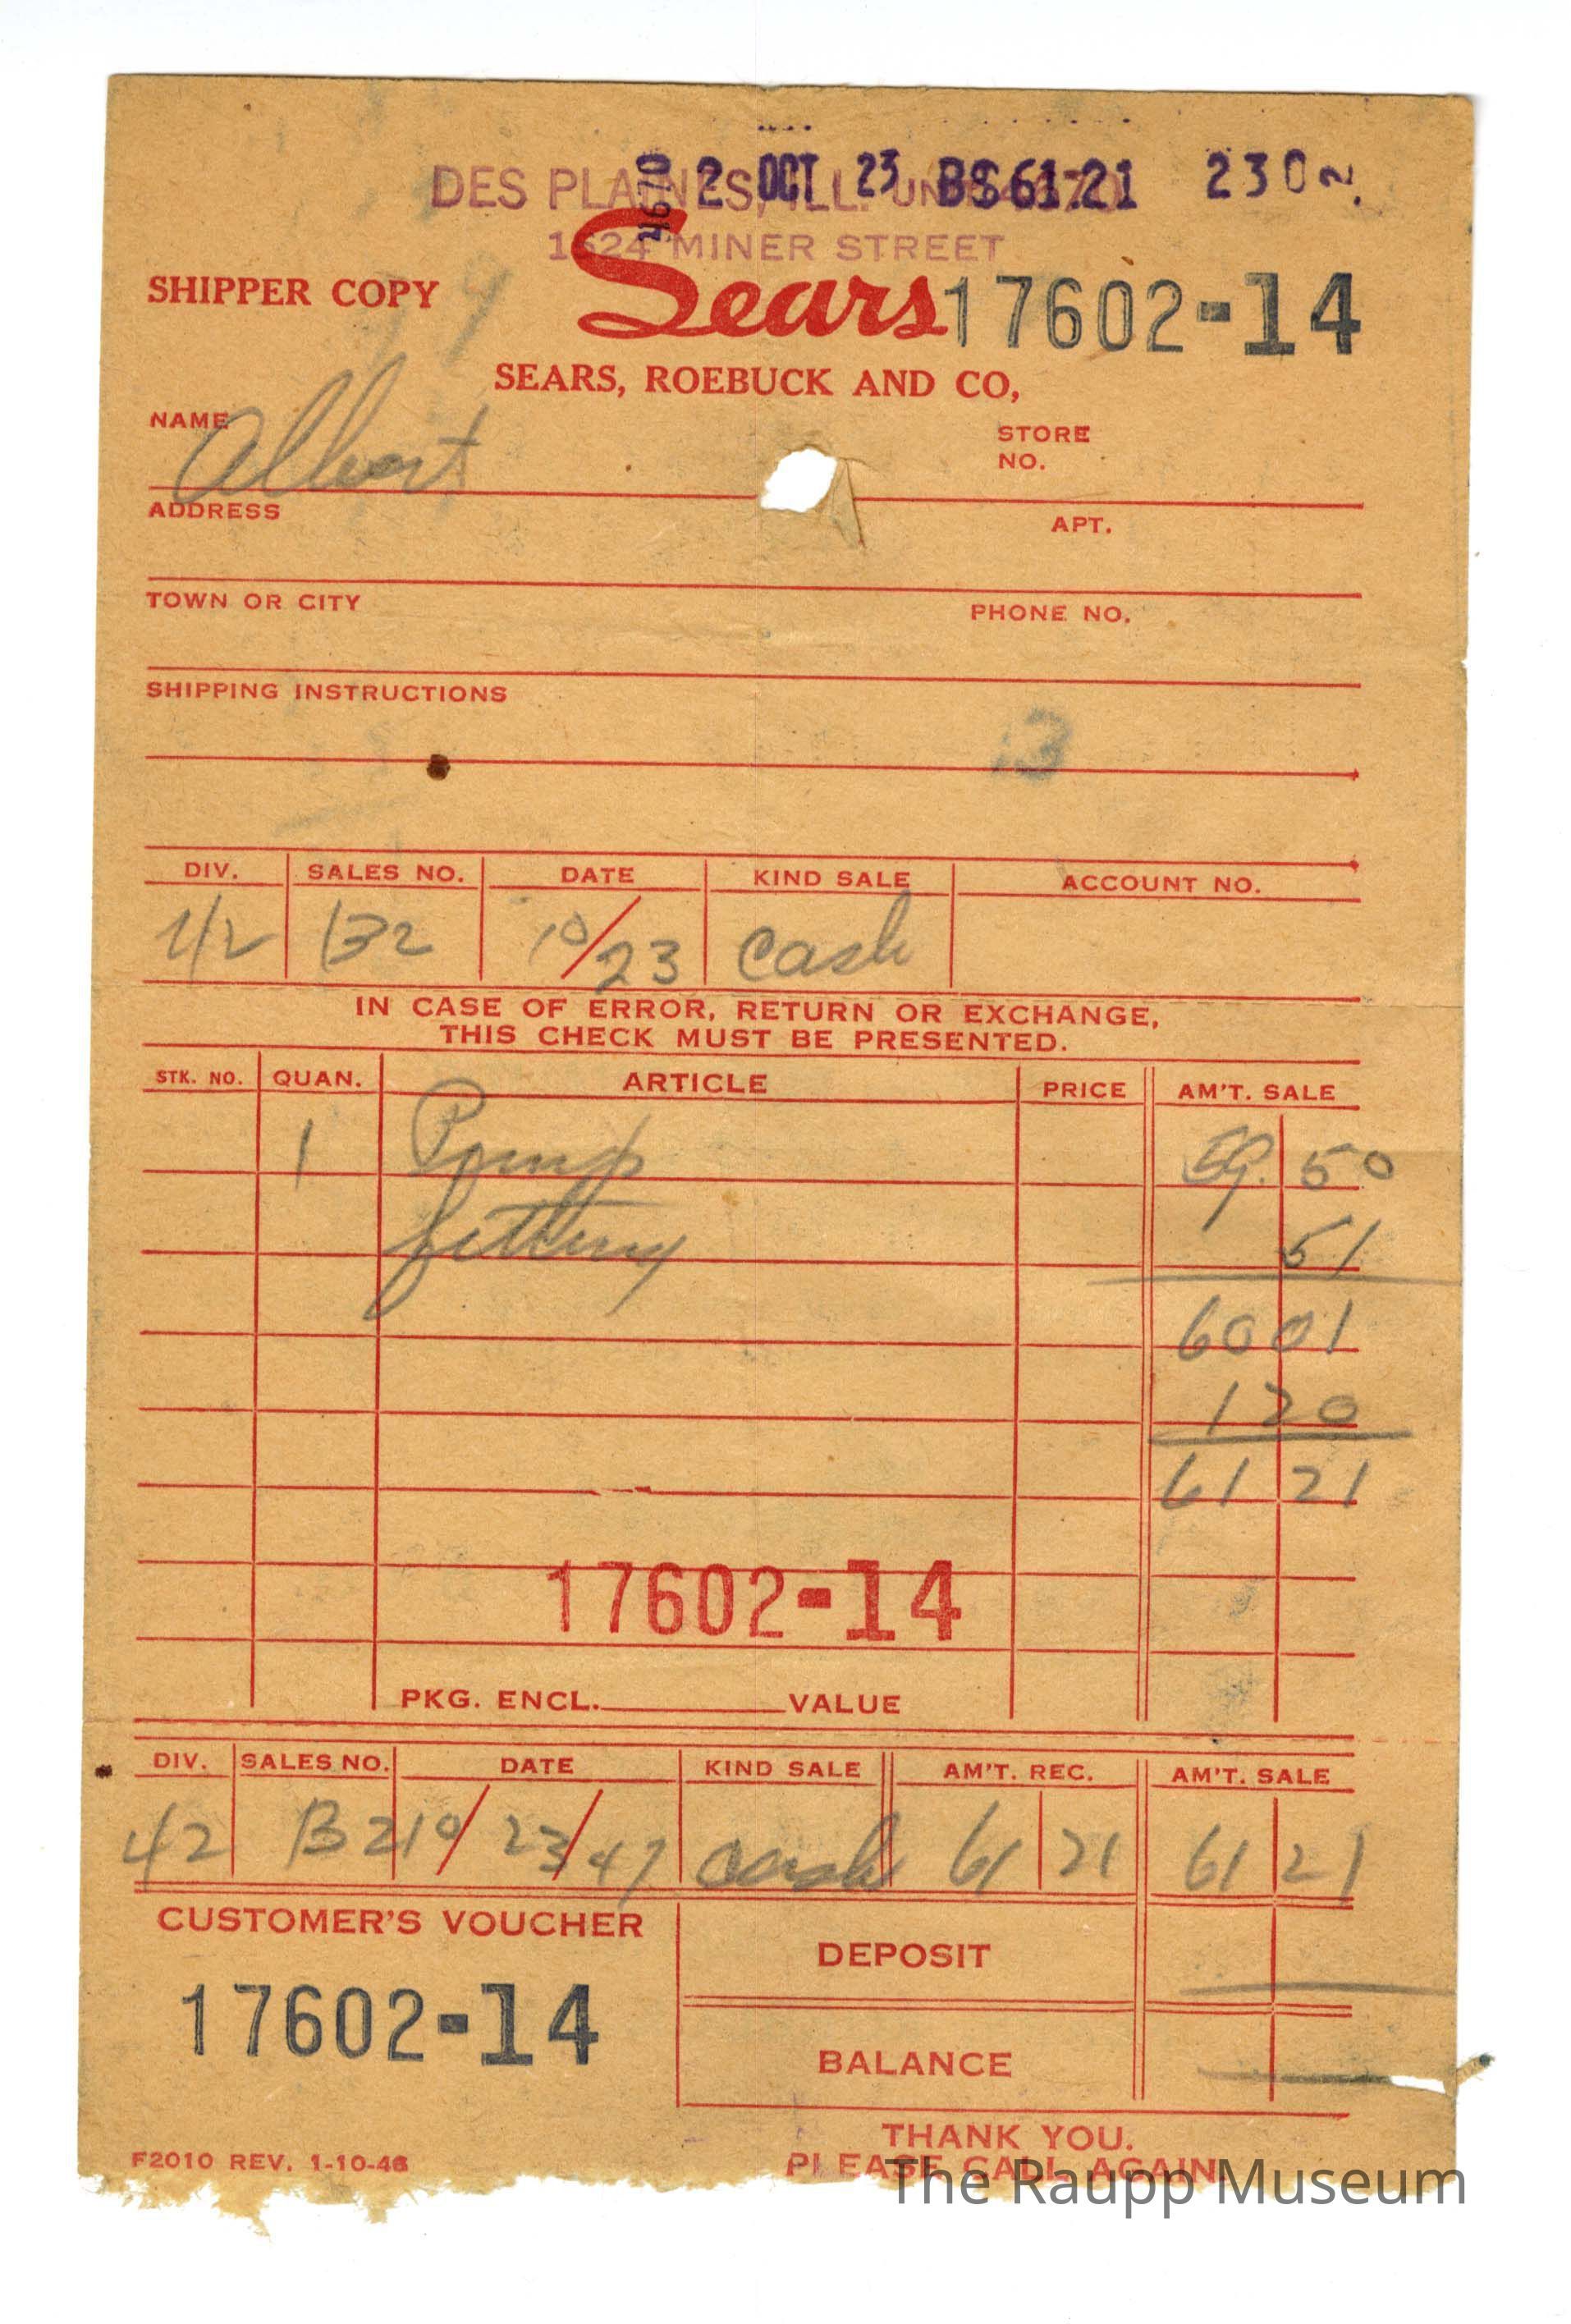 4670 2 OCT 23 BS61.21 2302
DES PLAINES, ILL. UNIT 4670
1624 MINER STREET
SHIPPER COPY Sears 17602-14
SEARS, ROEBUCK AND CO,
NAME Albert STORE NO.
ADDRESS APT.
TOWN OR CITY PHONE NO.
SHIPPING INSTRUCTIONS
13
DIV. SALES NO. DATE KIND SALE ACCOUNT NO.
42 B2 10/23 cash
IN CASE OF ERROR, RETURN OR EXCHANGE,
THIS CHECK MUST BE PRESENTED.
STK. NO. QUAN. ARTICLE PRICE AM'T. SALE
1 Pump 59.50
fitting 51
60 01
1 20
61 21
17602-14
PKG. ENCL. VALUE
DIV. SALES NO. DATE KIND SALE AM'T. REC. AM'T. SALE
42 B2 10/23/47 cash 61 21 61 21
CUSTOMER'S VOUCHER
DEPOSIT
17602-14
BALANCE
THANK YOU.
F2010 REV. 1-10-46 PLEASE CALL AGAIN.
The Raupp Museum